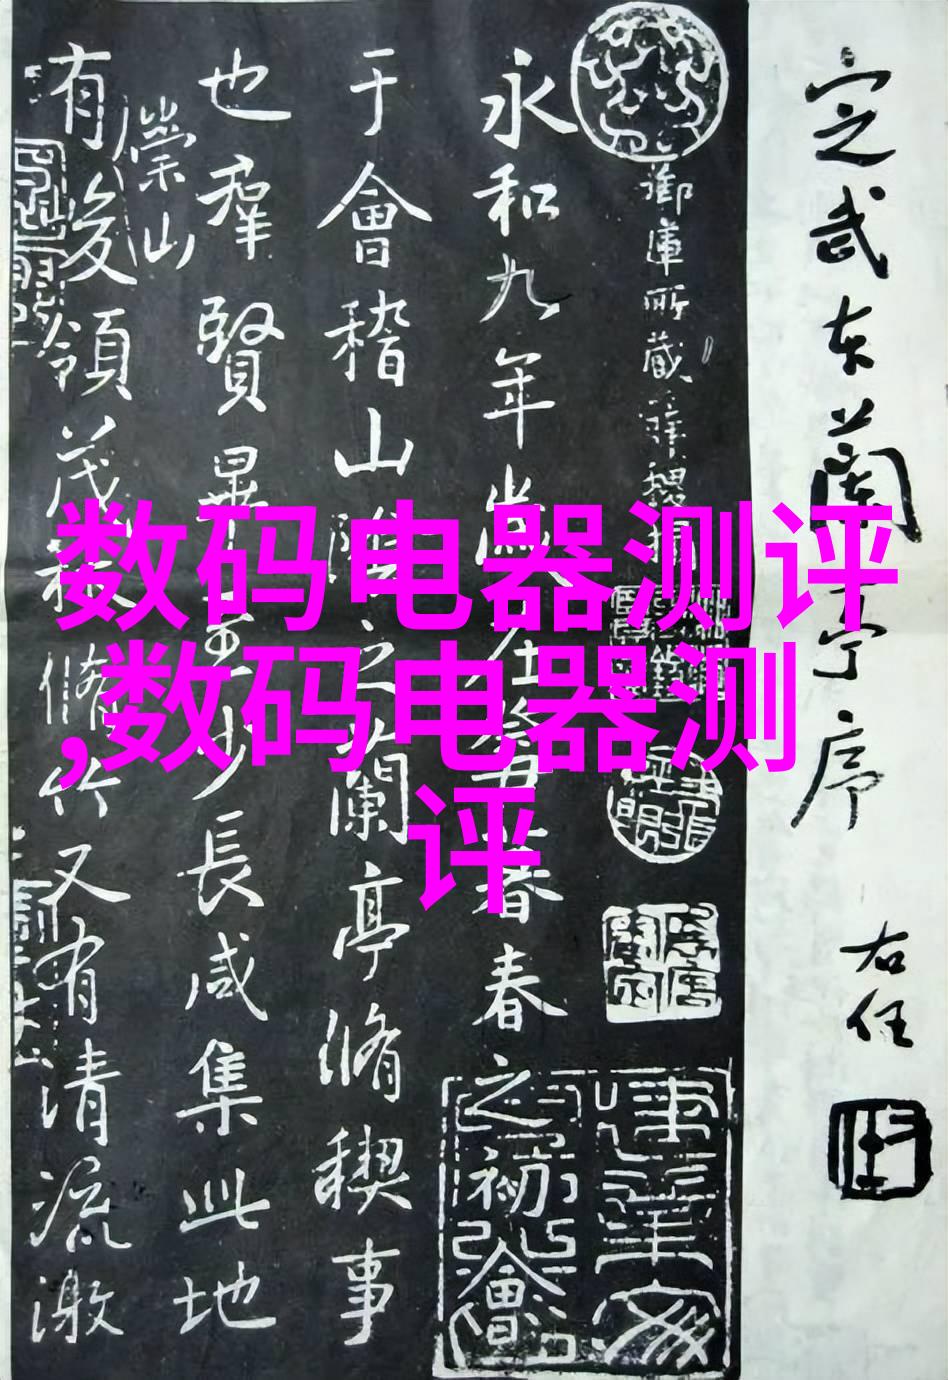 定武本蘭亭序
右任
御庫所藏薛稷摹
永和九年歲在癸丑暮春春之初會
于會稽山陰之蘭亭脩稧事
也羣賢畢至少長咸集此地
崇山
有峻領茂林脩竹又有清流激
数码电器测评
,数码电器测
评